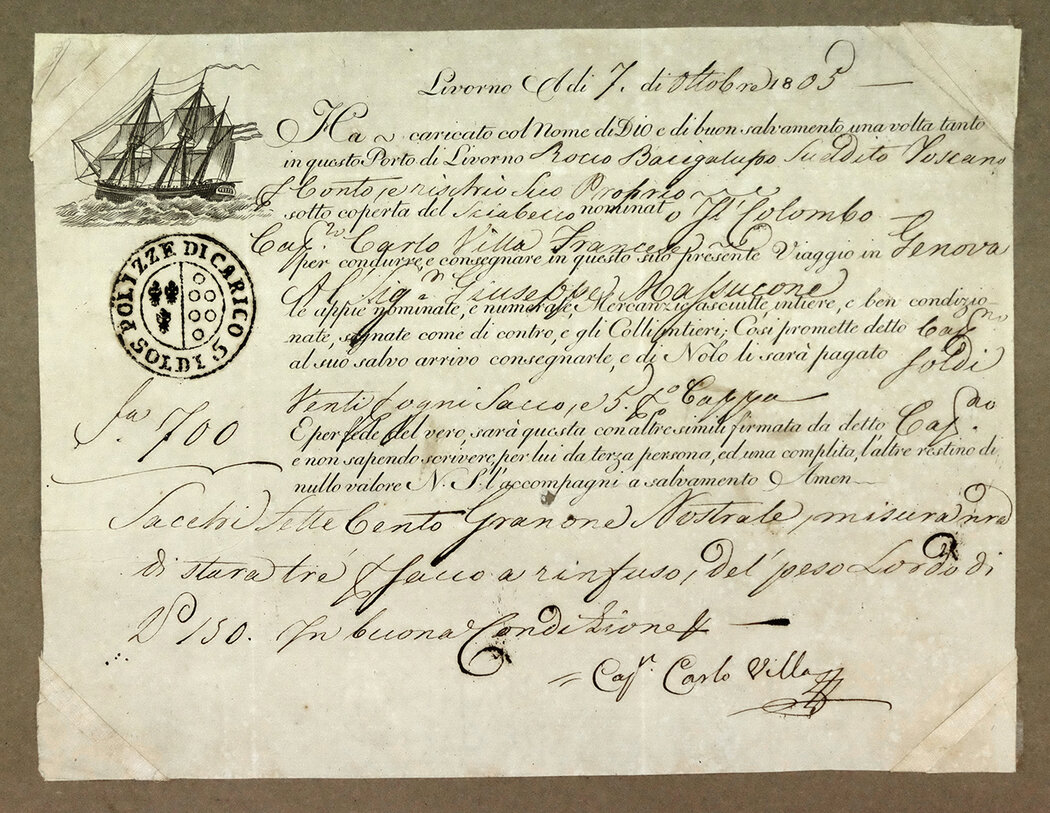 Livorno A di 7. di Ottobre 1805
Ha caricato col Nome di DIO e di buon salvamento una volta tanto
in questo Porto di Livorno Rocco Bacigalupo Suddito Toscano
Conto, e rischio Suo Proprio
sotto coperta del Sciabecco nominato Il Colombo
Cap.no Carlo Villa Francese
per condurre, e consegnare in questo suo presente Viaggio in Genova
Al Sig.r Giuseppe Massucone
le appiè nominate, e numerate Mercanzie asciutte, intiere, e ben condizio-
nate, segnate come di contro, e gli Colli intieri; Così promette detto Cap.no
al suo salvo arrivo consegnarle, e di Nolo li sarà pagato Soldi
Venti ogni Sacco, e 5. Cappa
E per fede del vero, sarà questa con altre simili firmata da detto Cap.no
e non sapendo scrivere, per lui da terza persona, ed una complita, l'altre restino di
nullo valore N. S. l'accompagni a salvamento Amen
POLIZZE DI CARICO
SOLDI 5
Sa. 700
Sacchi Sette Cento Granone Nostrale, misura nra
di stara tré sacco a rinfuso, del peso Lordo di
150. In buona Condizione
Cap.n Carlo Villa